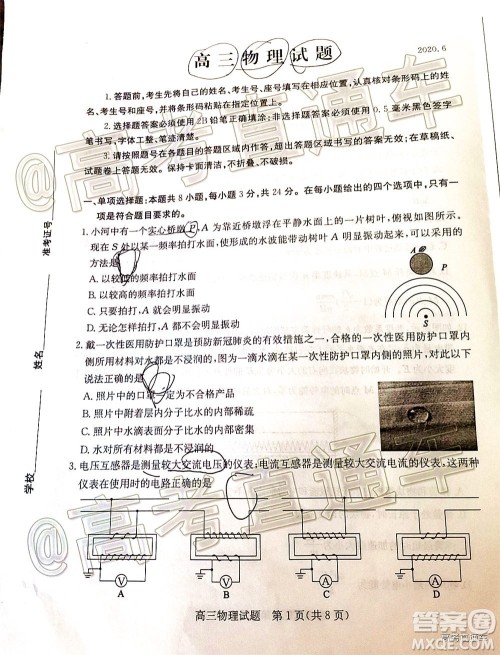 高三物理试题
2020.6
1. 答题前,考生先将自己的姓名、考生号、座号填写在相应位置,认真核对条形码上的姓
名、考生号和座号,并将条形码粘贴在指定位置上。
2. 选择题答案必须使用2B铅笔正确填涂;非选择题答案必须使用0.5毫米黑色签字
笔书写,字体工整、笔迹清楚。
3. 请按照题号在各题目的答题区域内作答,超出答题区域书写的答案无效;在草稿纸、
试题卷上答题无效。保持卡面清洁,不折叠、不破损。
一、单项选择题:本题共8小题,每小题3分,共24分。在每小题给出的四个选项中,只有一
项是符合题目要求的。
1. 小河中有一个实心桥墩P,A为靠近桥墩浮在平静水面上的一片树叶,俯视如图所示。
现在S处以某一频率拍打水面,使形成的水波能带动树叶A明显振动起来,可以采用的
方法是
A. 以较低的频率拍打水面
B. 以较高的频率拍打水面
C. 只要拍打,A就会明显振动
D. 无论怎样拍打,A都不会明显振动
A
P
S
2. 戴一次性医用防护口罩是预防新冠肺炎的有效措施之一,合格的一次性医用防护口罩内
侧所用材料对水都是不浸润的,图为一滴水滴在某一次性防护口罩内侧的照片,对此以下
说法正确的是
A. 照片中的口罩一定为不合格产品
B. 照片中附着层内分子比水的内部稀疏
C. 照片中附着层内分子比水的内部密集
D. 水对所有材料都是不浸润的
3. 电压互感器是测量较大交流电压的仪表,电流互感器是测量较大交流电流的仪表,这两种
仪表在使用时的电路正确的是
V
A
V
A
A
B
C
D
高三物理试题 第1页(共8页)
学校
姓名
准考证号
@高考直通车
@高考直通车
@高考直通车
答案圈
MXQE.COM